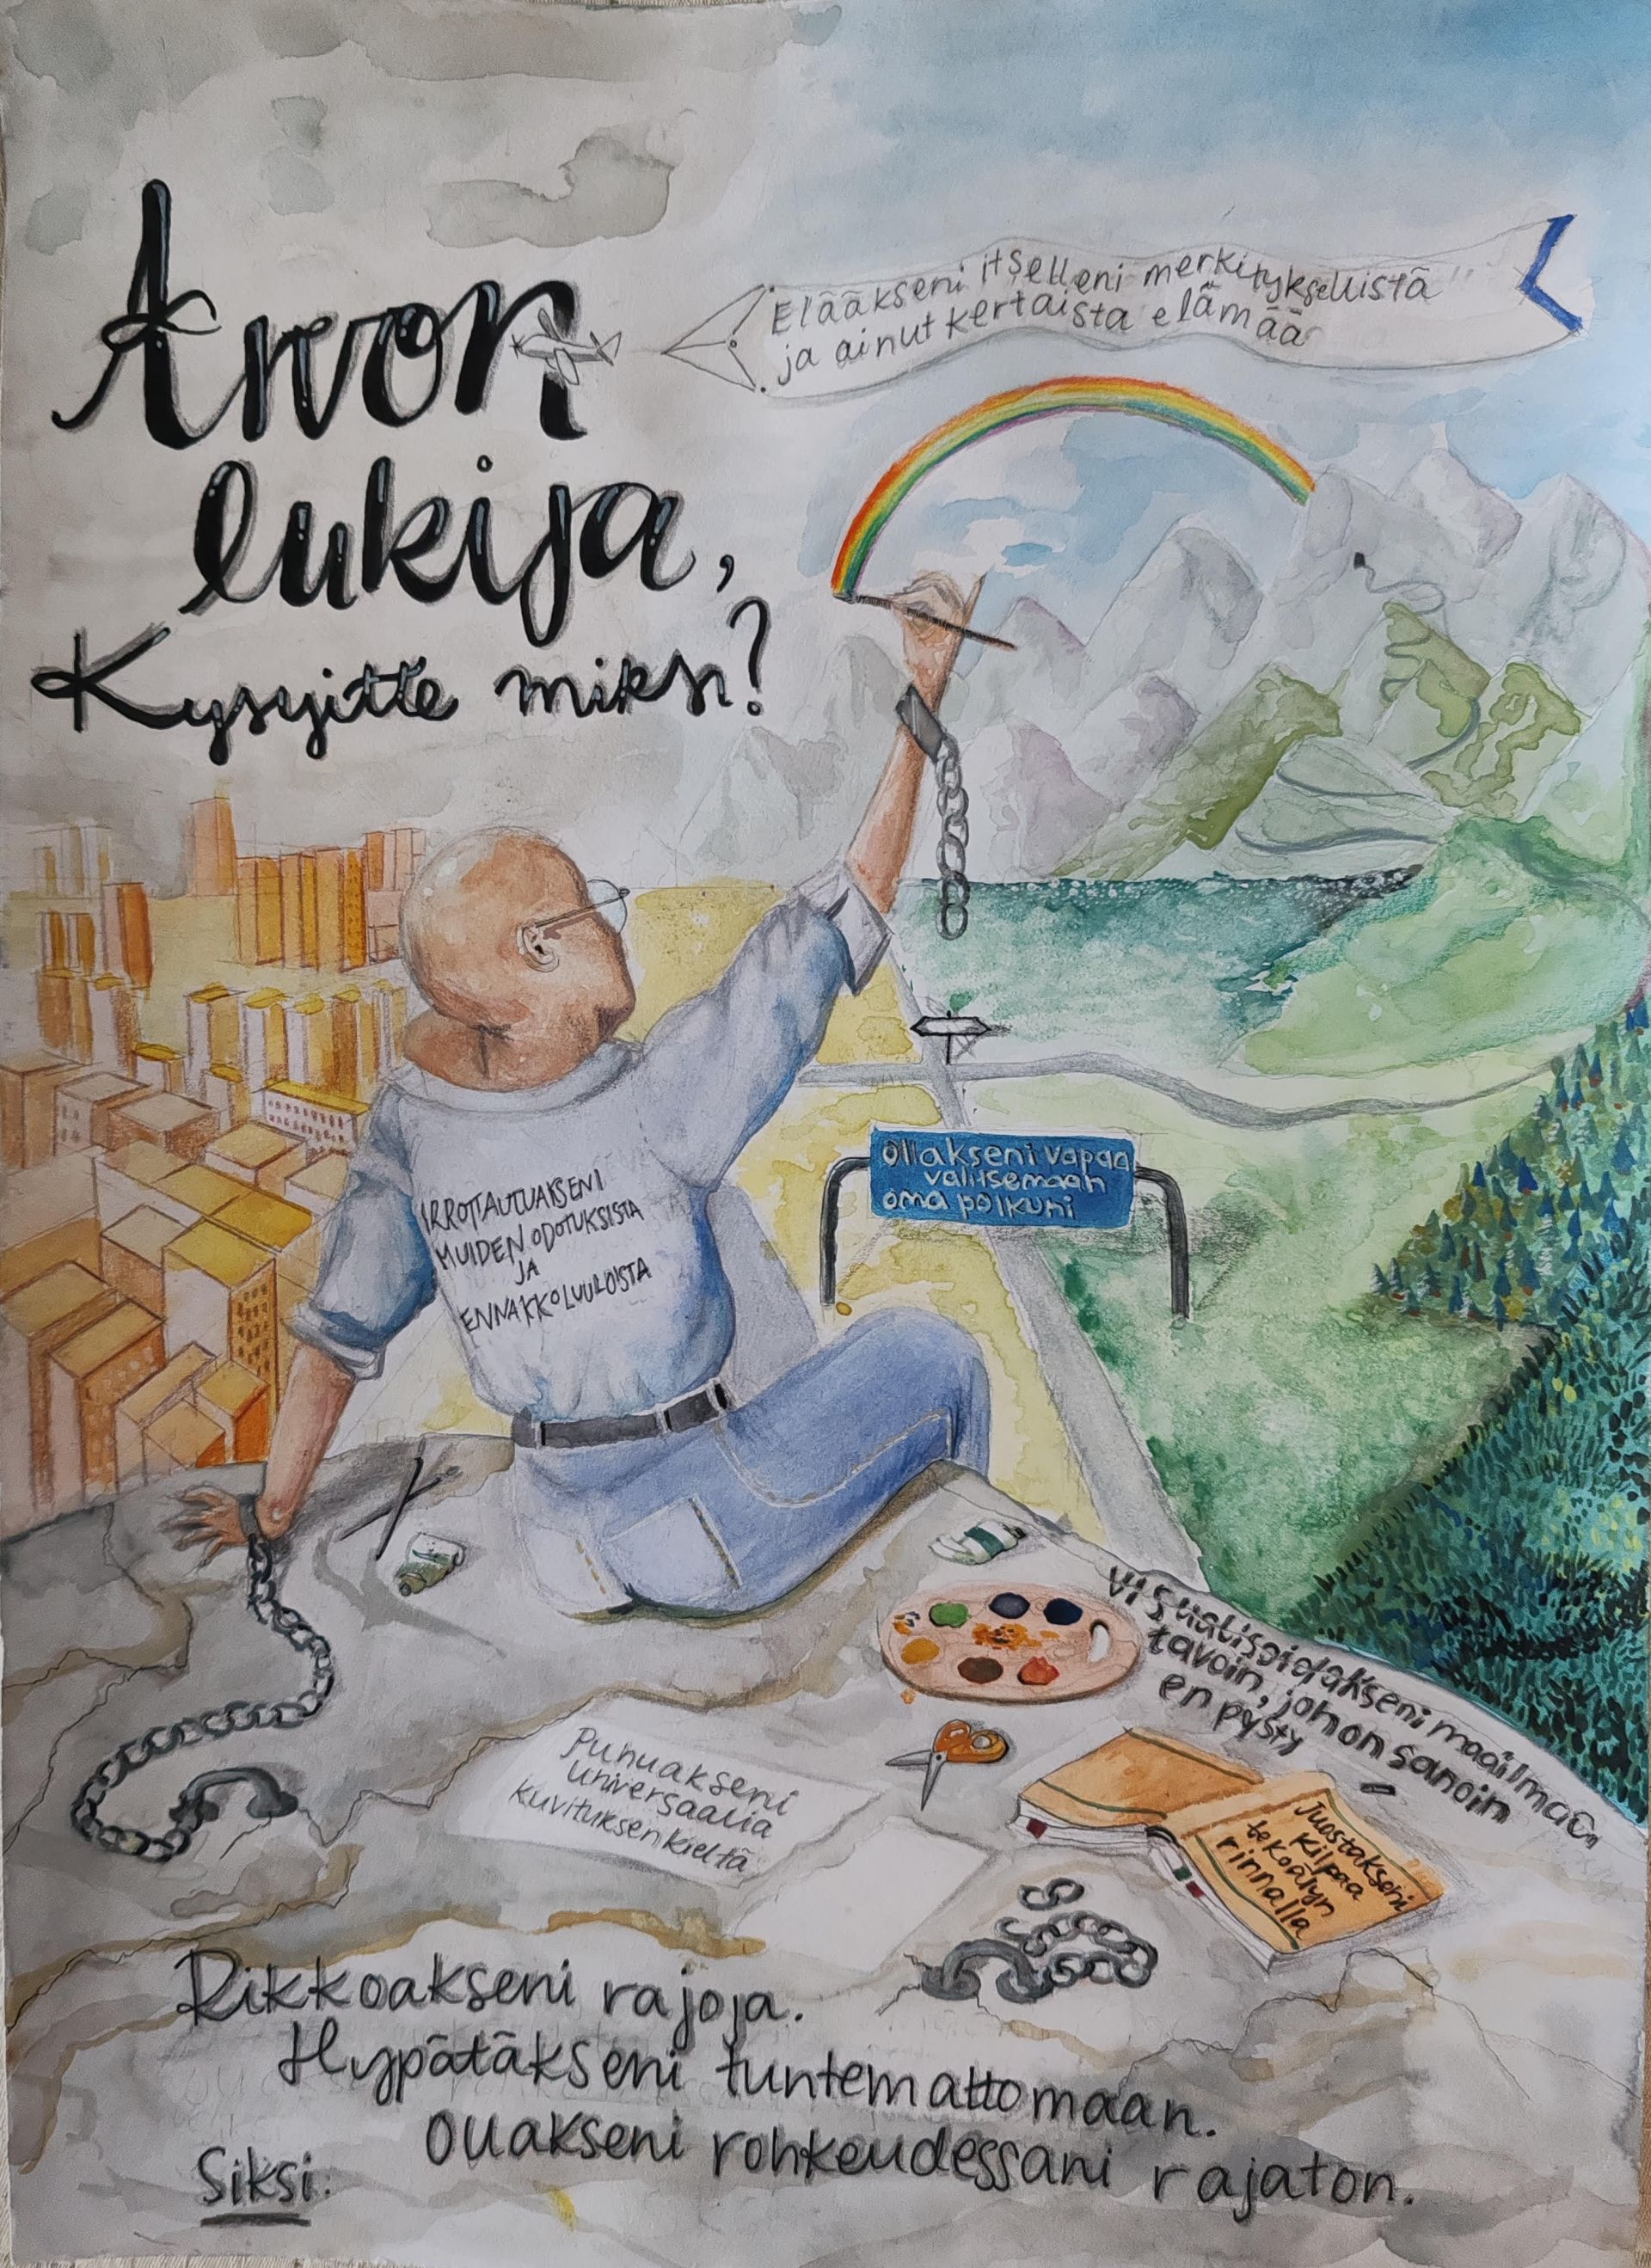 Arvon
lukija,
Kysyitte miksi?
Elääkseni itselleni merkityksellistä
ja ainutkertaista elämää
Ollakseni vapaa
valitsemaan
oma polkuni
IRROTTAUTUAKSENI
MUIDEN ODOTUKSISTA
JA
ENNAKKOLUULOISTA
Visualisoidakseni maailmaa
tavoin, johon sanoin
en pysty
Puhuakseni
universaalia
kuvituksen kieltä
Juostakseni
kilpaa
tekoälyn
rinnalla
Rikkoakseni rajoja.
Hypätäkseni tuntemattomaan.
Ollakseni rohkeudessani rajaton.
Siksi.